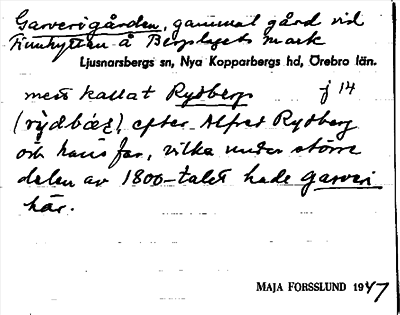 Garverigården, gammal gård vid
Finnhyttan å Bergslagets mark
Ljusnarsbergs sn, Nya Kopparbergs hd, Örebro län.
mest kallat Rydbergs j 14
efter Alfred Rydberg
och hans far, vilka under större
delen av 1800-talet hade garveri
här.
MAJA FORSSLUND 1947